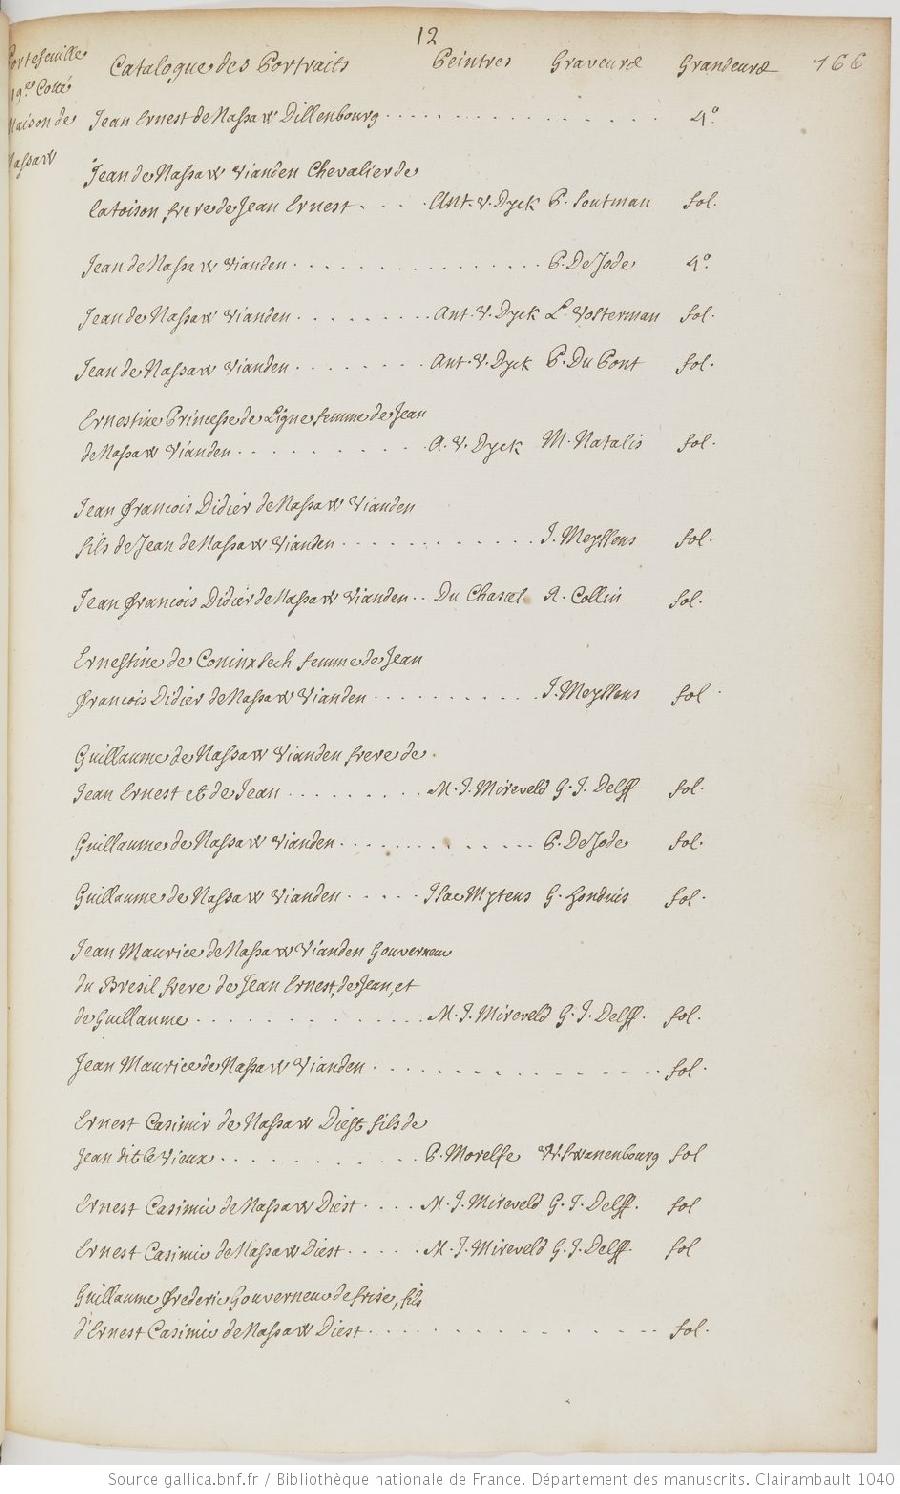 12
Portefeuille Catalogue des Portraits Peintres Graveurs Grandeurs 166
19.e Cotté
Maison de Jean Ernest de Nassaw Dillenbourg 4.º
Nassaw
Jean de Nassaw Vianden Chevalier de
la toison frere de Jean Ernest Ant. V. Dyck P. Soutman fol.
Jean de Nassaw Vianden P. De Jode 4.º
Jean de Nassaw Vianden Ant. V. Dyck L. Vosterman fol.
Jean de Nassaw Vianden Ant. V. Dyck P. Du Pont fol.
Ernestine Princesse de Ligne femme de Jean
de Nassaw Vianden A. V. Dyck M. Natalis fol.
Jean françois Didier de Nassaw Vianden
fils de Jean de Nassaw Vianden J. Meyssens fol.
Jean françois Didier de Nassaw Vianden Du Chatel R. Collin fol.
Ernestine de femme de Jean
françois Didier de Nassaw Vianden J. Meyssens fol.
Guillaume de Nassaw Vianden frere de
Jean Ernest et de Jean M. J. Mireveld G. J. Delff fol.
Guillaume de Nassaw Vianden P. De Jode fol.
Guillaume de Nassaw Vianden Isac Mytens G. Hondius fol.
Jean Maurice de Nassaw Vianden Gouverneur
du Bresil frere de Jean Ernest, de Jean, et
de Guillaume M. J. Mireveld G. J. Delff. fol.
Jean Maurice de Nassaw Vianden fol.
Ernest Casimir de Nassaw Diest fils de
Jean dit le Vieux P. Morelse W. Swanenbourg fol
Ernest Casimir de Nassaw Diest M. J. Mireveld G. J. Delff. fol
Ernest Casimir de Nassaw Diest M. J. Mireveld G. J. Delff. fol
Guillaume frederic Gouverneur de frise, fils
d'Ernest Casimir de Nassaw Diest fol.
Source gallica.bnf.fr / Bibliothèque nationale de France. Département des manuscrits. Clairambault 1040